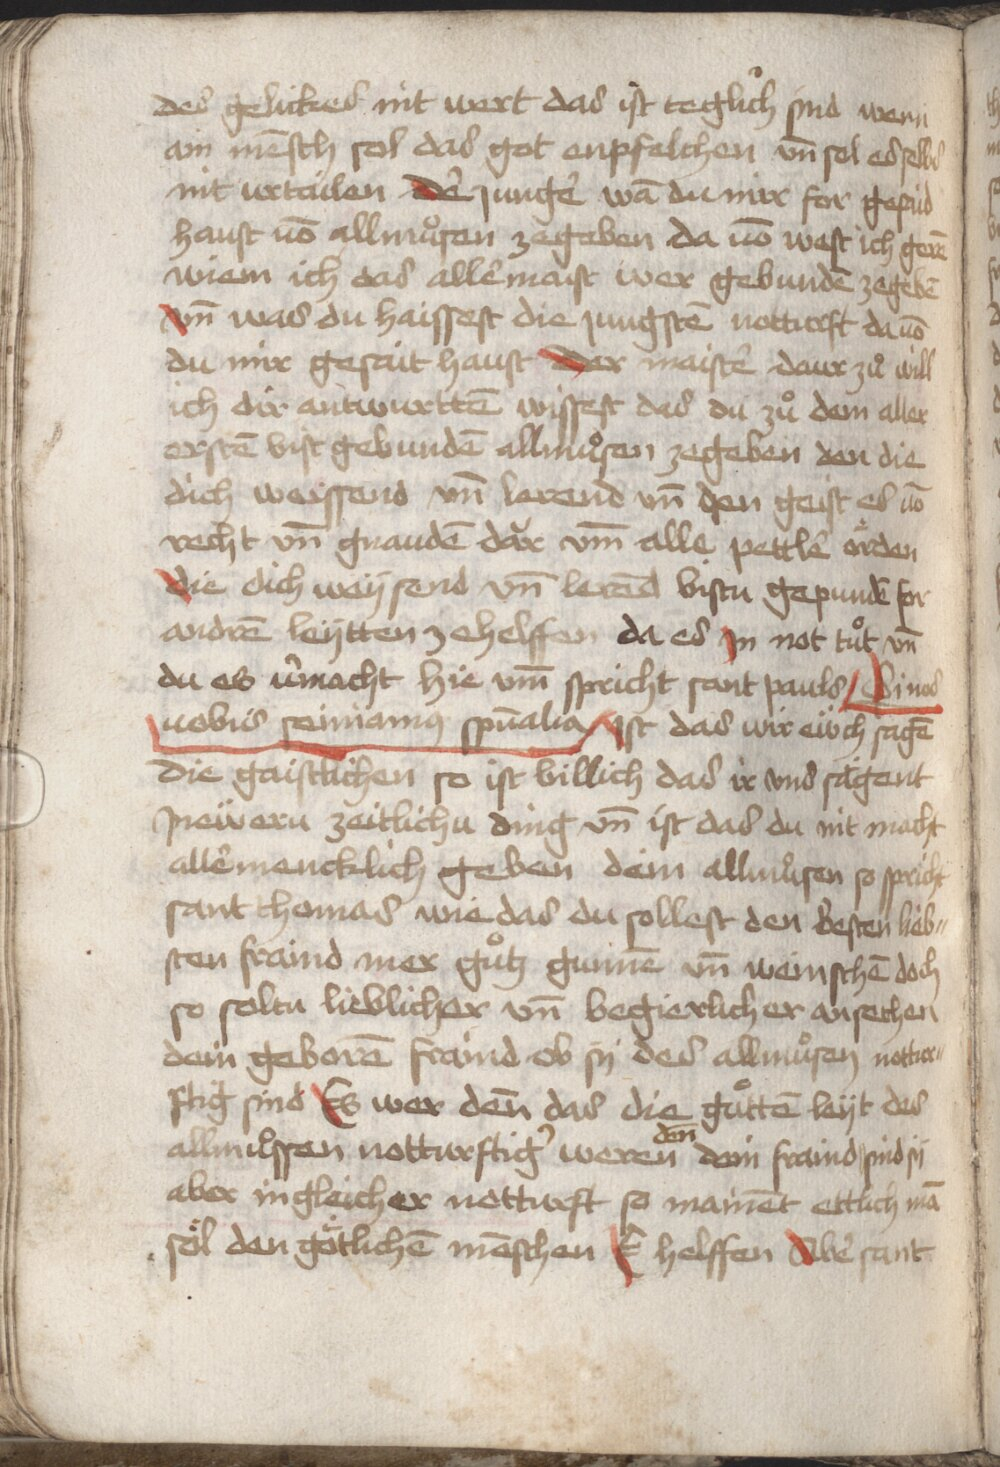 des gelickes nit wert das ist teglich sind wenn
ain mēsch sol das got enpfelchen vn̄ sol es selbs
nit urtailen der junger wā du mir for geseid
haust uō allmůsen zegeben da uō west ich gerē
wiem ich das aller maist wer gebundē zegebē
vn̄ was du haissest die jungstē notturft da uō
du mir gesait haust der maister daur zů will
ich dir antwurttē wissest das du zů dem aller
erstē bist gebundē allmůsen zegeben den die
dich weissend vn̄ lerend vn̄ den geist es uō
recht vn̄ gnaudē dar vm̄ alle pettler örden
die dich weÿsend vn̄ lerend bistu gepundē for
andrē leÿtten zehelffen da es in not tůt vn̄
du es v̄macht hie vm̄ spricht sant pauls Si nos
uobis seminamus spūalia Ist das wir eüch sagē
die gaistlichen so ist billich das ir vns sägent
Ineẅern zeitlichn ding vn̄ ist das du nit macht
allermencklich geben dein allmůsen so spricht
sant thomas wie das du sollest den besten lieb〃
sten fraind mer gůtz gunnē vn̄ weinschē doch
so soltu lieblicher vn̄ begierlicher ansechen
dein geborē fraind ob sÿ des allmůsen nottur〃
ftig sind Es wer den̄ das die gůttē leÿt des
allmůssen notturftiger weren den̄ dein fraind sind sÿ
aber in gleicher notturft so mainēt ettlich mā
söl den götlichē mēschen ē helffen Aber sant